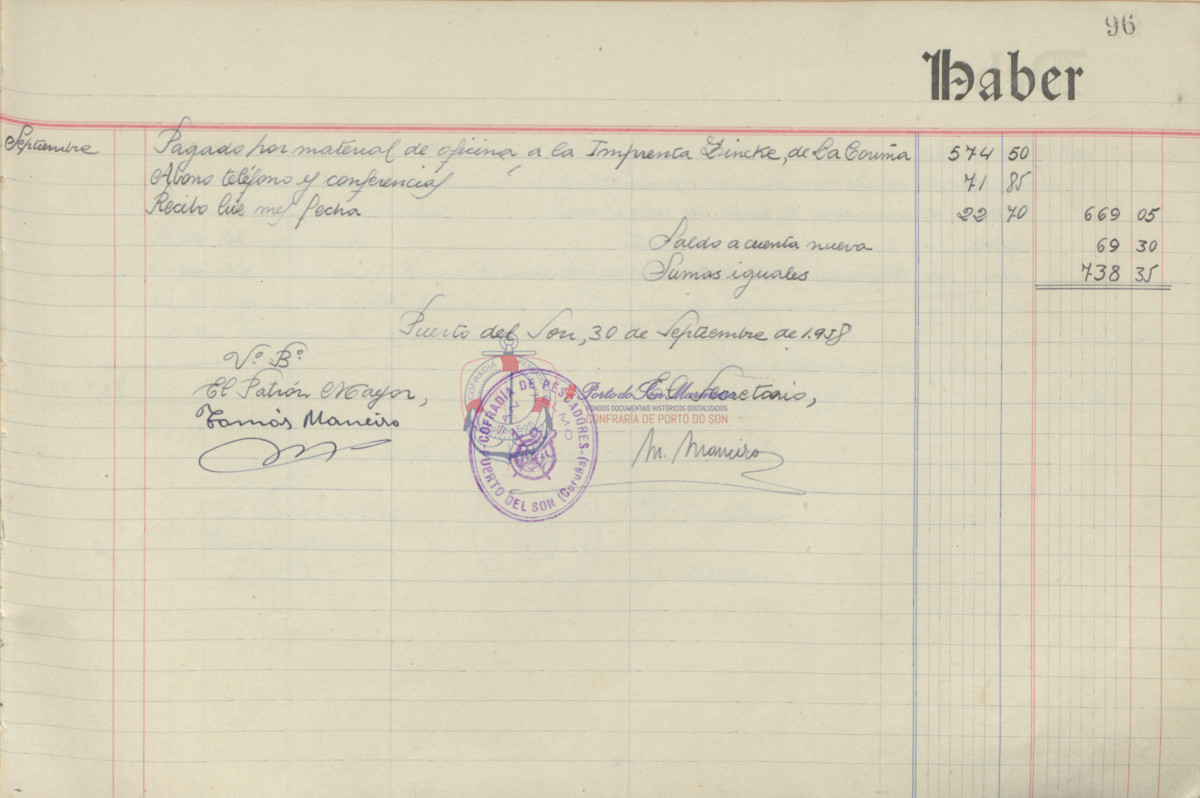 96
Haber
Septiembre Pagado por material de oficina a la Imprenta Zincke, de La Couña 574 50
Abono teléfono y conferencias 71 85
Recibo luz mes fecha 22 70 669 05
Saldo a cuenta nueva 69 30
Sumas iguales 738 35
Puerto del Son, 30 de Septiembre de 1.958
Vº Bº
El Patrón Mayor, El Secretario,
Tomás Maneiro
M. Maneiro
COFRADIA DE PESCADORES
PUERTO DEL SON (Coruña)
Porto do Son
FONDOS DOCUMENTAIS HISTÓRICOS DIXITALIZADOS
CONFRARÍA DE PORTO DO SON